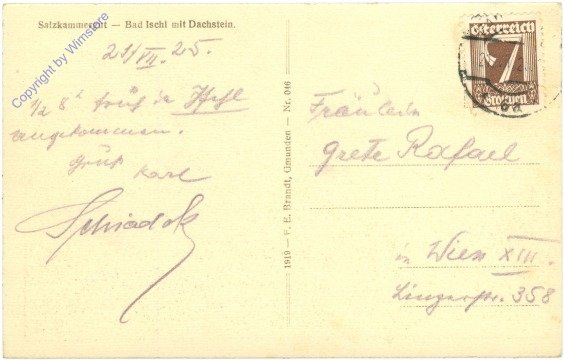 Salzkammergut — Bad Ischl mit Dachstein.
21/VII. 25.
1/2 8h früh in Ischl
angekommen.
Gruß
Karl
1919 — F. E. Brandt, Gmunden — Nr. 046
Österreich
7
Groschen
Fräulein
Grete Rafael
in Wien XIII.
Linzerstr. 358
Copyright by Wimstore